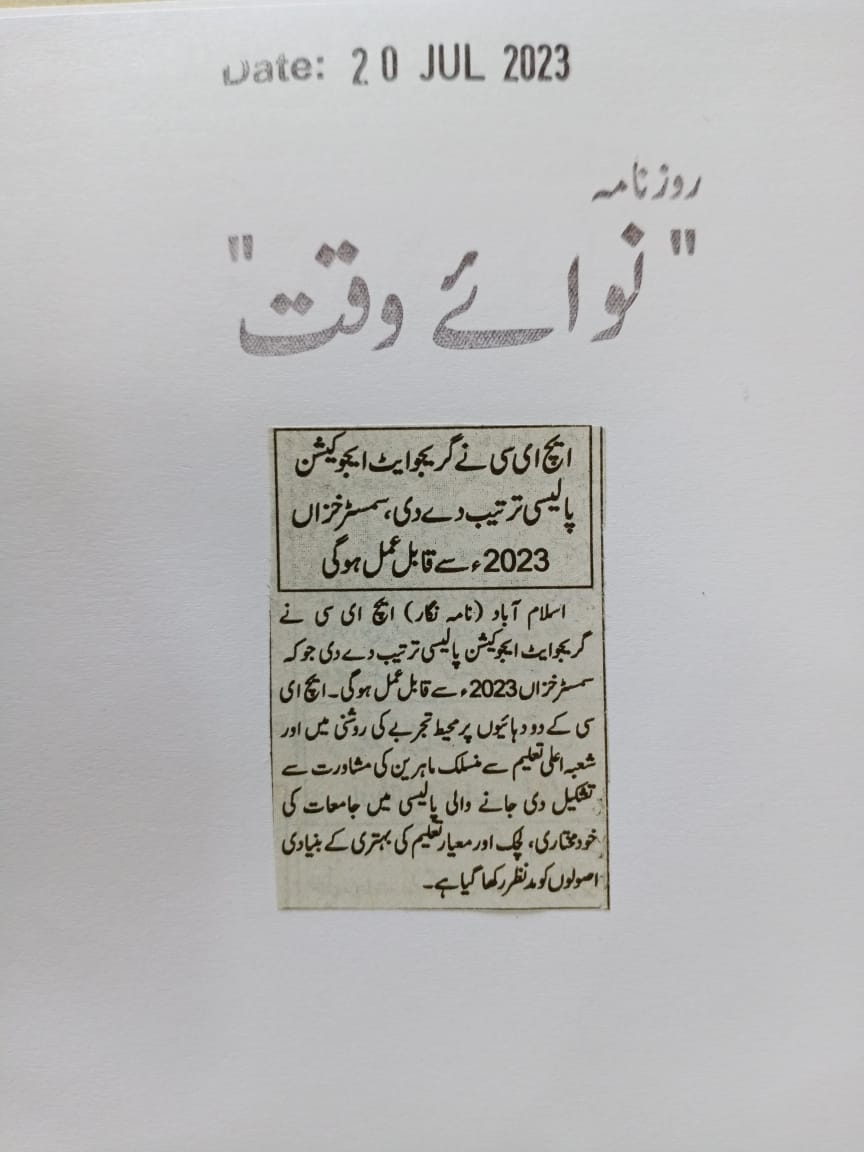 Date: 20 JUL 2023
روزنامہ
"نوائے وقت"
ایچ ای سی نے گریجوایٹ ایجوکیشن
پالیسی ترتیب دے دی، سمسٹر خزاں
2023ء سے قابل عمل ہوگی
اسلام آباد (نامہ نگار) ایچ ای سی نے
گریجوایٹ ایجوکیشن پالیسی ترتیب دے دی جوکہ
سمسٹر خزاں 2023ء سے قابل عمل ہوگی۔ ایچ ای
سی کے دو دہائیوں پر محیط تجربے کی روشنی میں اور
شعبہ اعلیٰ تعلیم سے منسلک ماہرین کی مشاورت سے
تشکیل دی جانے والی پالیسی میں جامعات کی
خودمختاری، لچک اور معیار تعلیم کی بہتری کے بنیادی
اصولوں کو مدنظر رکھا گیا ہے۔